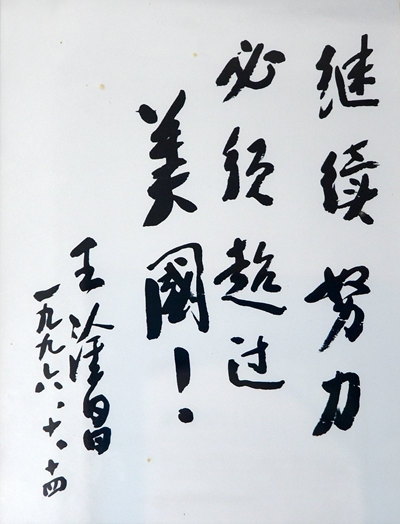 继续努力
必须超过
美國!
王淦昌
一九九六.十.十四